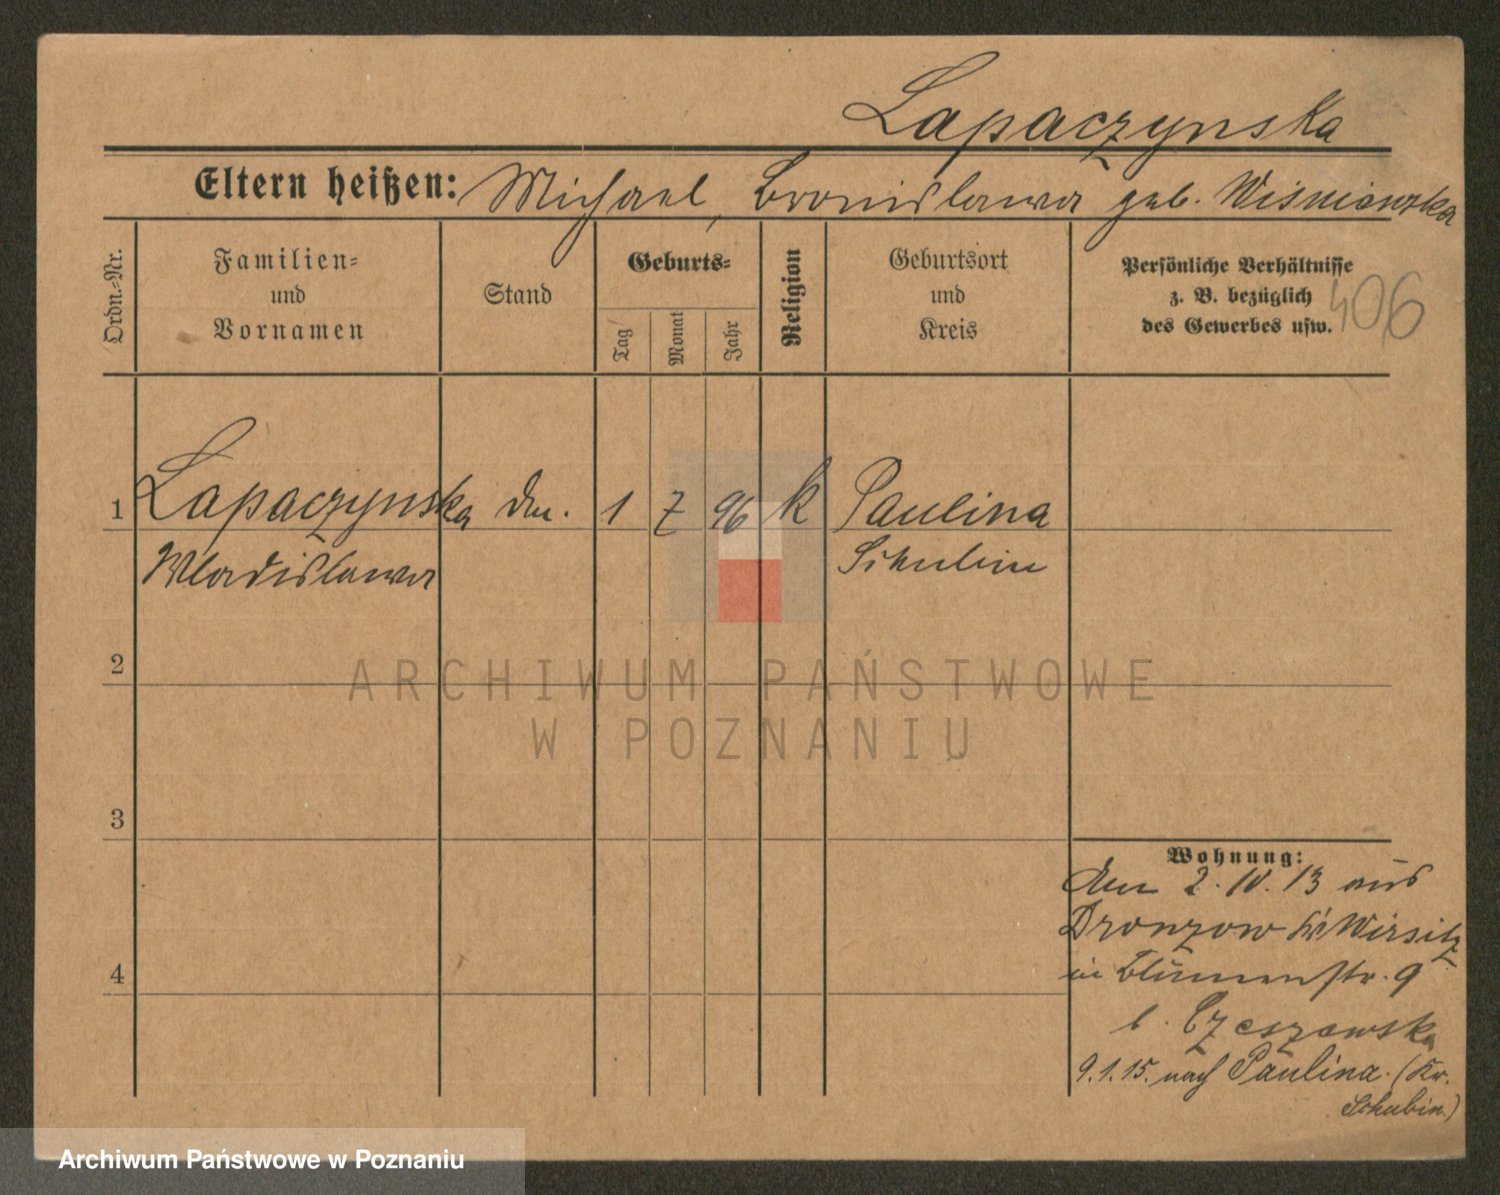 Lapaczynska
Eltern heißen: Michael, Bronislawa geb. Wisniewska
Ordn.-Nr.
Familien-
und
Vornamen
Stand
Geburts-
Tag
Monat
Jahr
Religion
Geburtsort
und
Kreis
Persönliche Verhältnisse
z. B. bezüglich
des Gewerbes usw.
406
1 Lapaczynska 1 7 96 k Paulina
Wladislawa Schubin
2
3
4
Wohnung:
2. 10. 13 aus
Wirsitz
in Blumenstr. 9
b. Czeszewska
9.1.15. nach Paulina. (Kr.
Schubin.)
ARCHIWUM PAŃSTWOWE
W POZNANIU
Archiwum Państwowe w Poznaniu